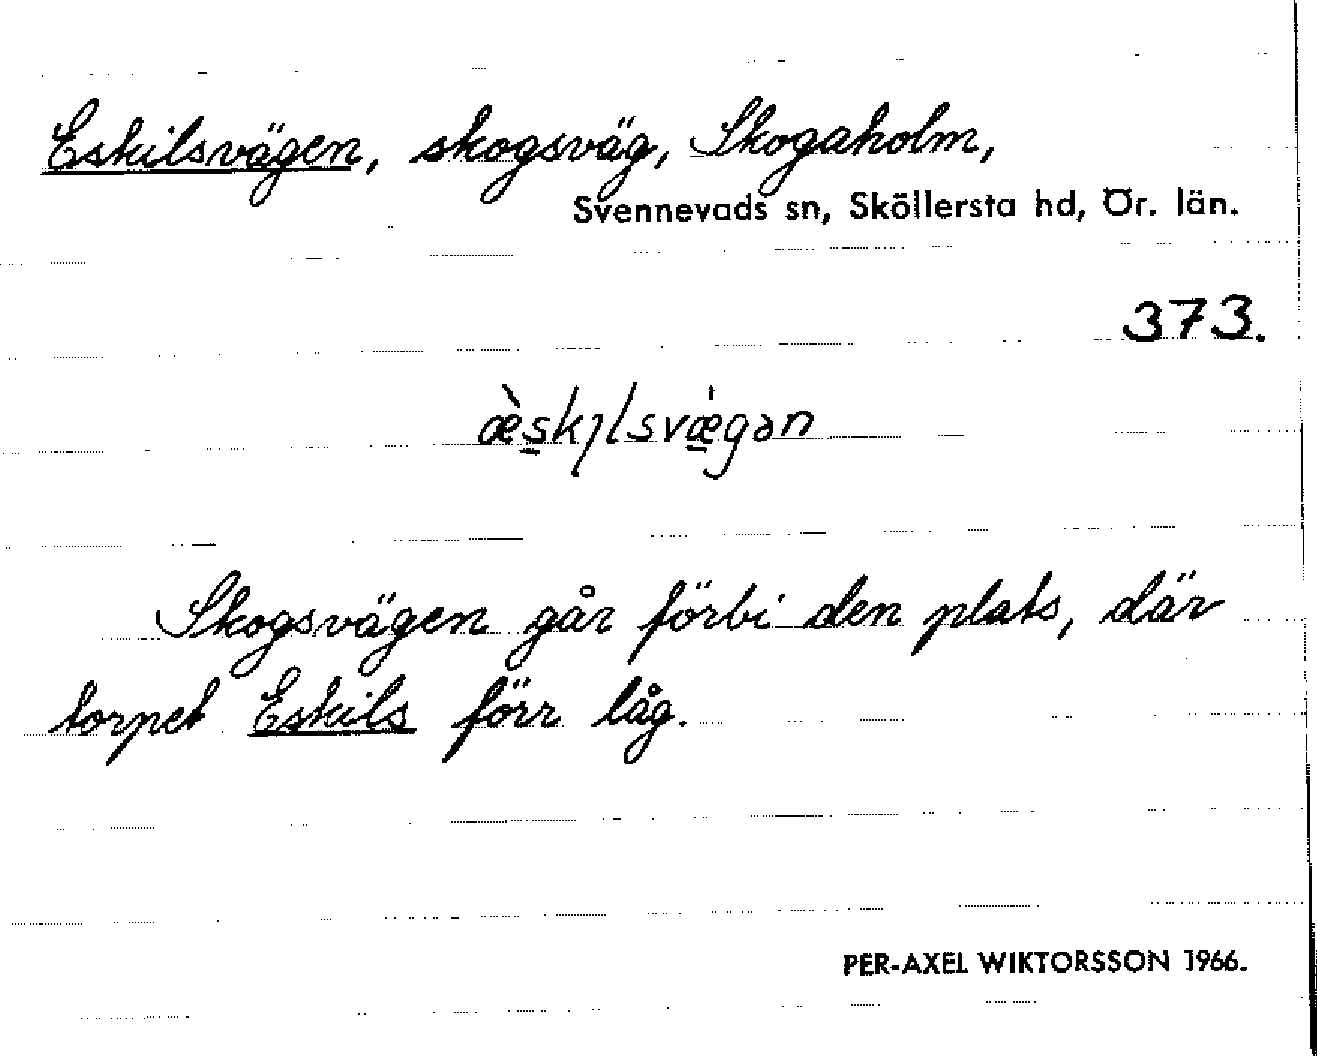 Eskilsvägen, skogsväg, Skogaholm,
Svennevads sn, Sköllersta hd, Ör. län.
373.
æ̀sk̬ılsvæ̀gən
Skogsvägen går förbi den plats, där
torpet Eskils förr låg.
PER-AXEL WIKTORSSON 1966.